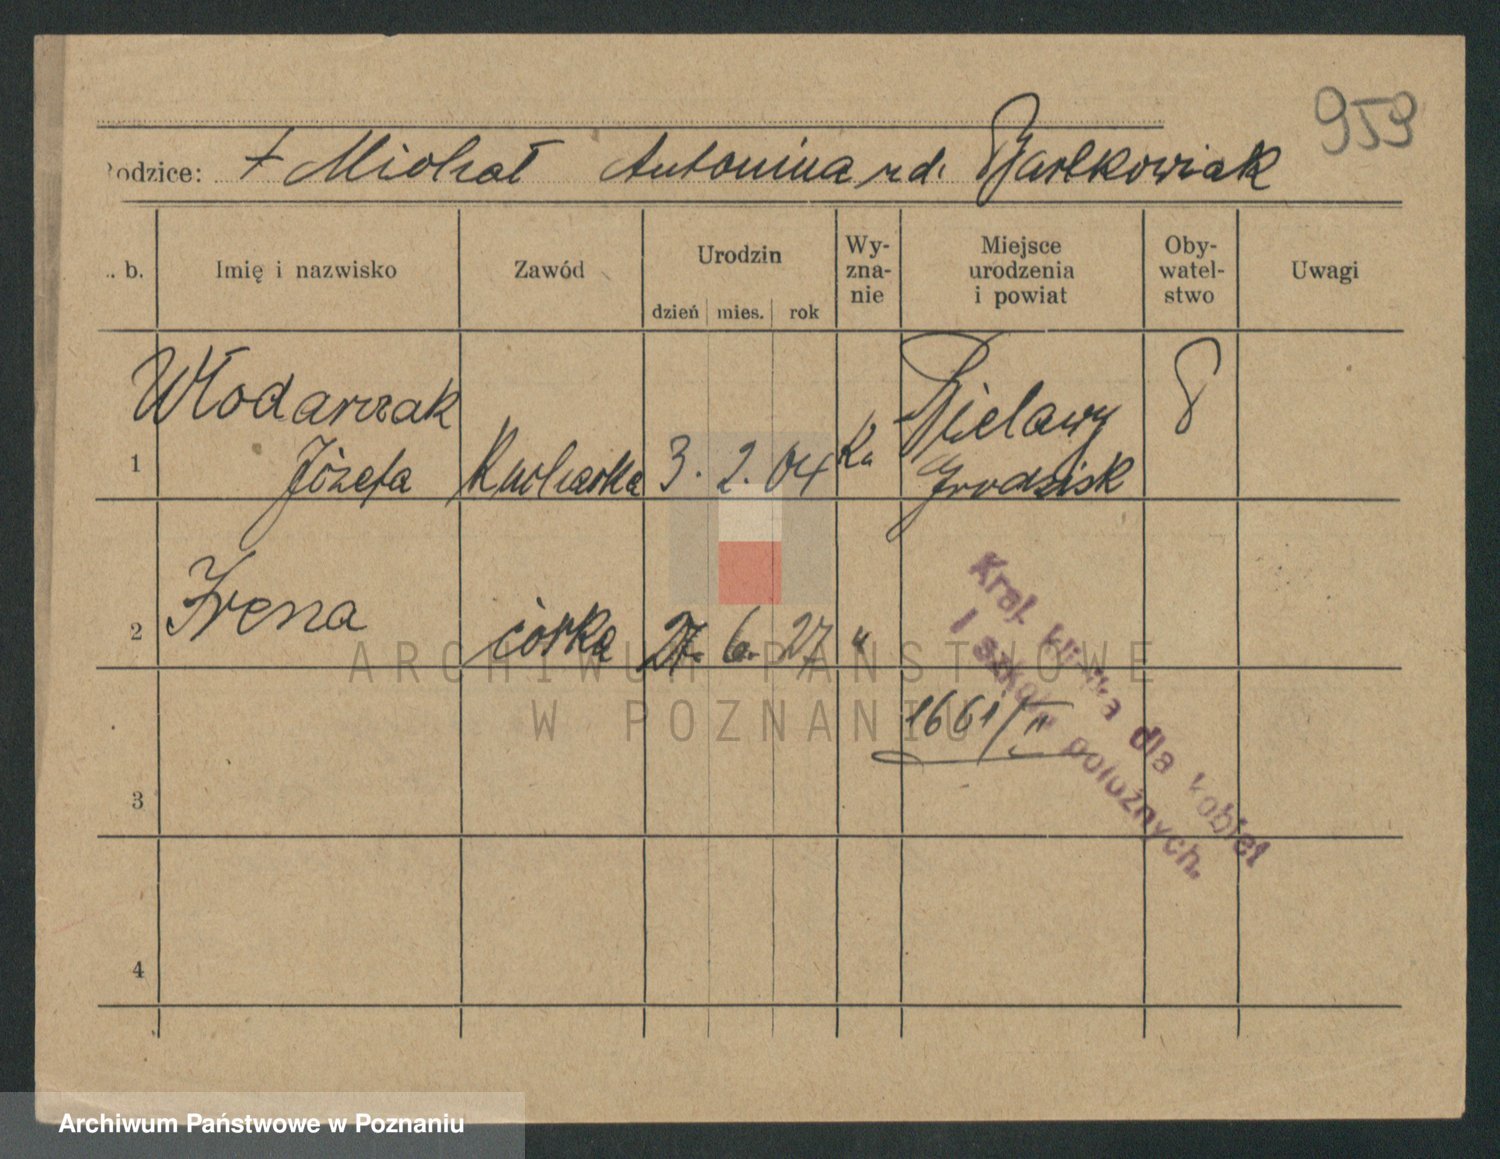 959
Rodzice: † Michał Antonina rd. Bartkowiak
L. b.
Imię i nazwisko
Zawód
Urodzin
dzień mies. rok
Wy-
zna-
nie
Miejsce
urodzenia
i powiat
Oby-
watel-
stwo
Uwagi
Włodarczak
1 Józefa Kucharka 3. 2. 04 Ka Bielawy
Grodzisk
2 Irena córka 27. 6. 27 "
1661/II
Kraj. klinika dla kobiet
i szkoła położnych.
3
4
ARCHIWUM PAŃSTWOWE
W POZNANIU
Archiwum Państwowe w Poznaniu